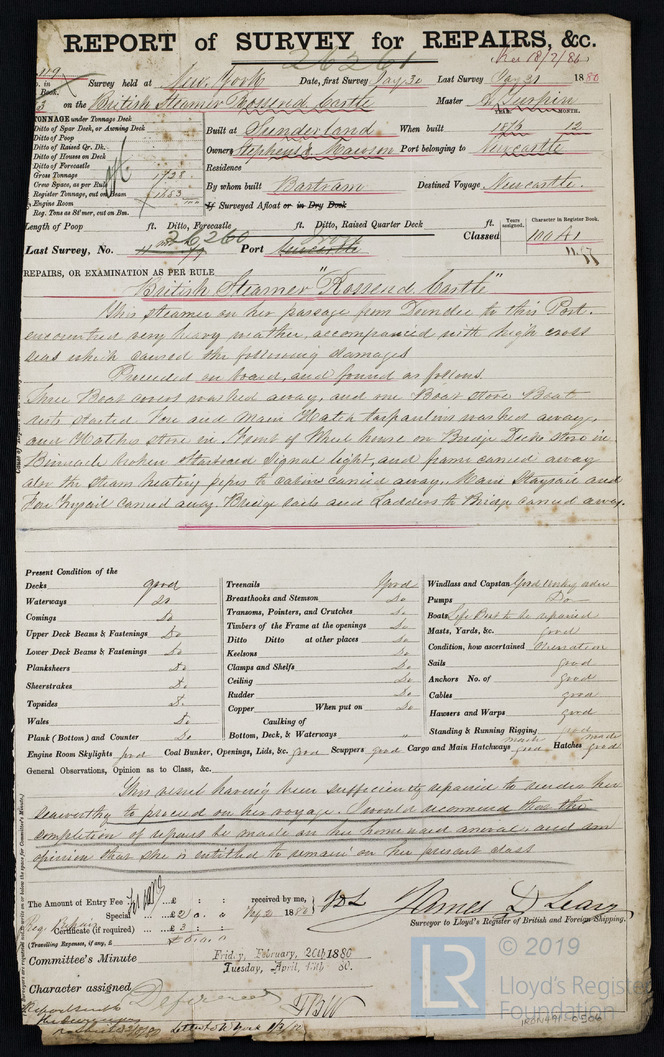 Rec 18/2/80
REPORT of SURVEY for REPAIRS, &c.
26261
Survey held at New York Date, first Survey Jany 30 Last Survey Jany 31 1880
on the British Steamer Rossend Castle Master
TONNAGE under Tonnage Deck
Ditto of Spar Deck, or Awning Deck
Ditto of Poop
Ditto of Raised Qr. Dk.
Ditto of Houses on Deck
Ditto of Forecastle
Gross Tonnage
Crew Space, as per Rule
Register Tonnage, out on Beam
Engine Room
Reg. Tons as St'mer, cut on Bm.
YEAR. MONTH.
Built at Sunderland When built 12
Owners Stephens & Mawson Port belonging to Newcastle
Residence
By whom built Bartram Destined Voyage Newcastle.
If Surveyed Afloat or in Dry Dock
Length of Poop ft. Ditto, Forecastle ft. Ditto, Raised Quarter Deck ft.
Years assigned. Character in Register Book.
Last Survey, No. 26260 Port Newcastle Classed 100 A1
REPAIRS, OR EXAMINATION AS PER RULE
British Steamer "Rossend Castle"
This steamer on her passage from Dundee to this Port.
encountred very heavy weather, accompanied with high cross
seas which caused the following damages
Proceeded on board, and found as follows
Three Boat covers washed away, and one Boat stove Boat
started Fore and Main Hatch tarpaulins washed away,
Hatches stove in, Front of Wheel house on Bridge Deck stove in
Binnacle broken Starboard Signal light, and frame carried away
also the steam heating pipes to cabins carried away, Main Staysail and
Fore Trysail carried away. Bridge sails and Ladders to Bridge carried away.
Present Condition of the
Decks good
Waterways Do
Comings Do
Upper Deck Beams & Fastenings Do
Lower Deck Beams & Fastenings Do
Planksheers Do
Sheerstrakes Do
Topsides Do
Wales Do
Plank (Bottom) and Counter Do
Treenails Good
Breasthooks and Stemson Do
Transoms, Pointers, and Crutches Do
Timbers of the Frame at the openings Do
Ditto Ditto at other places Do
Keelsons Do
Clamps and Shelfs Do
Ceiling Do
Rudder Do
Copper When put on Do
Caulking of
Bottom, Deck, & Waterways "
Windlass and Capstan Good working order
Pumps Do
Boats Life Boat to be repaired
Masts, Yards, &c. good
Condition, how ascertained
Sails good
Anchors No. of good
Cables good
Hawsers and Warps good
Standing & Running Rigging good
Engine Room Skylights good Coal Bunker, Openings, Lids, &c. good Scuppers good Cargo and Main Hatchways made good Hatches made good
General Observations, Opinion as to Class, &c.
This vessel having been sufficiently repaired to render her
seaworthy to proceed on her voyage. I would recommend that the
completion of repairs be made on her homeward arrival, and am
opinion that she is entitled to remain on her present class
The Amount of Entry Fee £ : : received by me,
Special £ 2 : 0 : 0 1880
Certificate (if required) £ 3 : :
(Travelling Expenses, if any, £
James D Leary
Surveyor to Lloyd's Register of British and Foreign Shipping.
Committee's Minute Friday, February, 20th 1880
Tuesday, April, 13th 80.
Character assigned Deferred
© 2019
Lloyd's Register
Foundation
LR